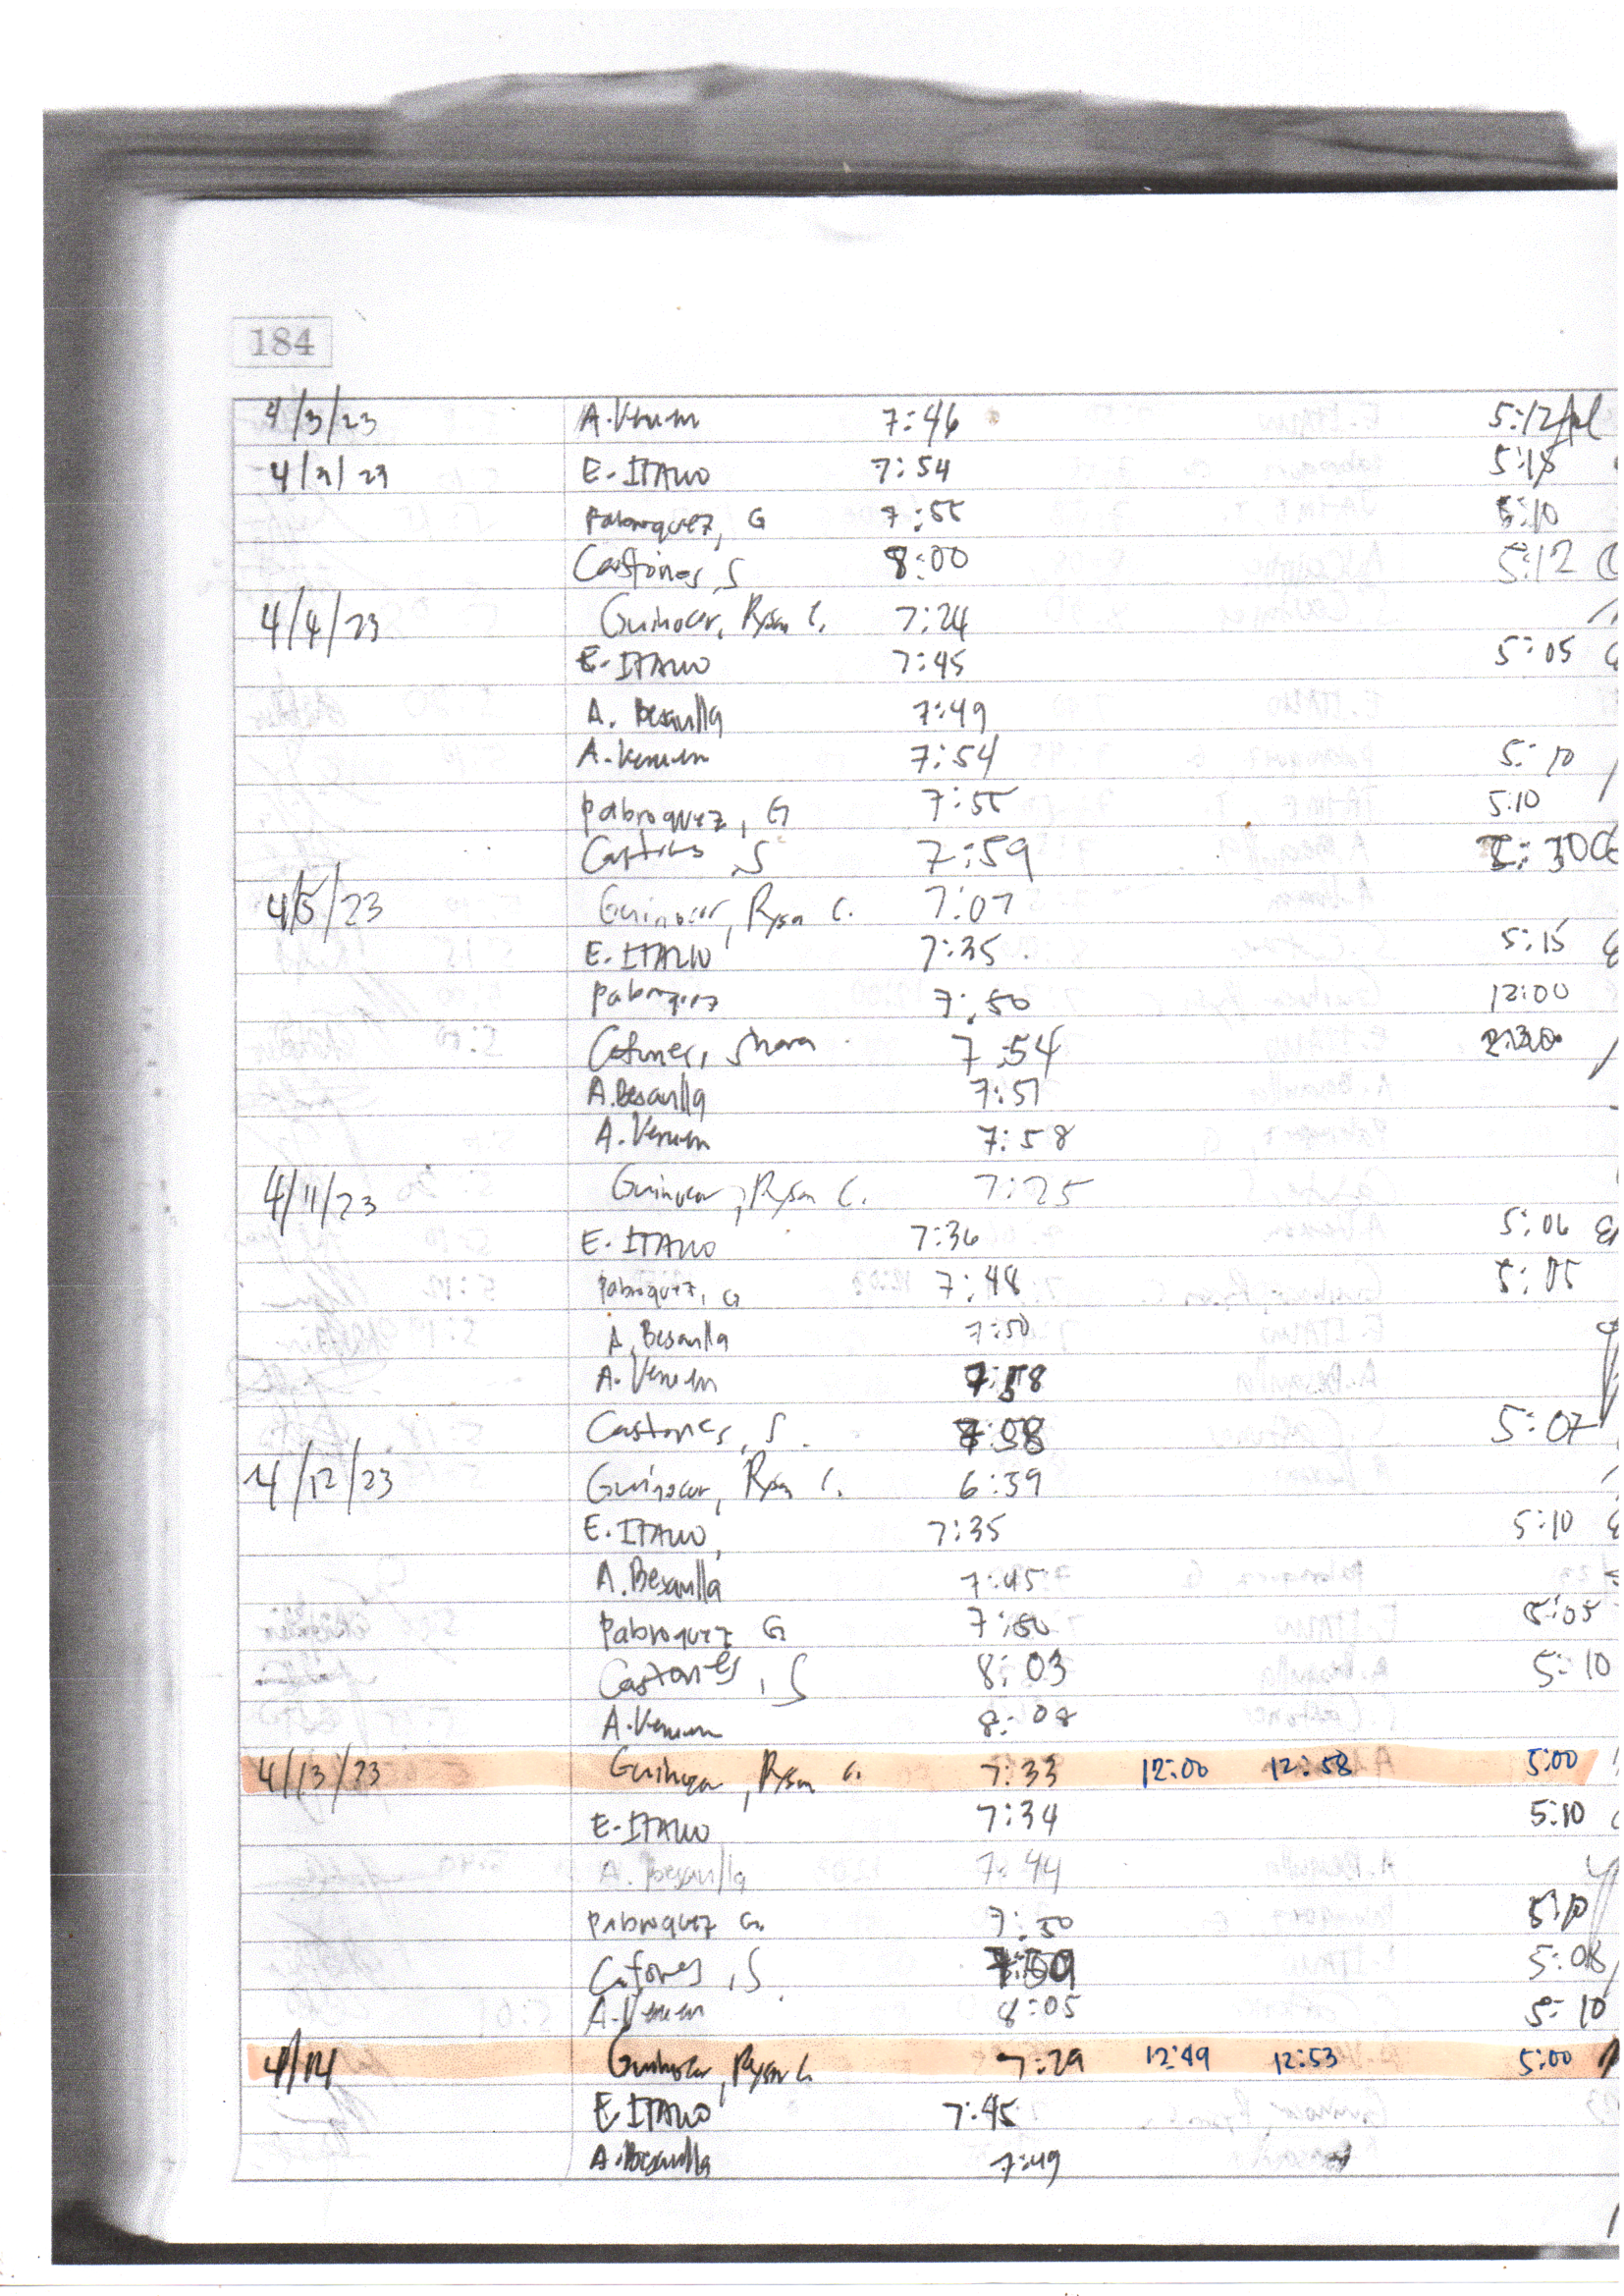 184
4/3/23 A. 7:46 5:12
4/3/23 E. ITALIO 7:54 5:18
Pabroquez, G 7:55 5:10
Castones, S 8:00 5:12
4/4/23 Guinocor, Rysa C. 7:24
E. ITALIO 7:45 5:05
A. Besarilla 7:49
A. 7:54 5:10
Pabroquez, G 7:55 5:10
Castones, S 7:59
4/5/23 Guinocor, Rysa C. 7:07
E. ITALIO 7:35 5:15
7:50 12:00
7:54
A. Besarilla 7:57
A. 7:58
4/11/23 Guinocor, Rysa C. 7:25
E. ITALIO 7:36 5:06
Pabroquez, G 7:48 5:05
A. Besarilla 7:50
A. 7:58
Castones, S. 7:58 5:07
4/12/23 Guinocor, Rysa C. 6:39
E. ITALIO, 7:35 5:10
A. Besarilla 7:45
Pabroquez G 7:50 5:05
Castones, S 8:03 5:10
A. 8:08
4/13/23 Guinocor, Rysa C. 7:33 12:00 12:58 5:00
E. ITALIO 7:34 5:10
A. Besarilla 7:44
Pabroquez G. 7:50 5:10
S 7:59 5:08
A. 8:05 5:10
4/14 Guinocor, Rysa C. 7:29 12:49 12:53 5:00
E ITALIO 7:45
A. Besarilla 7:49